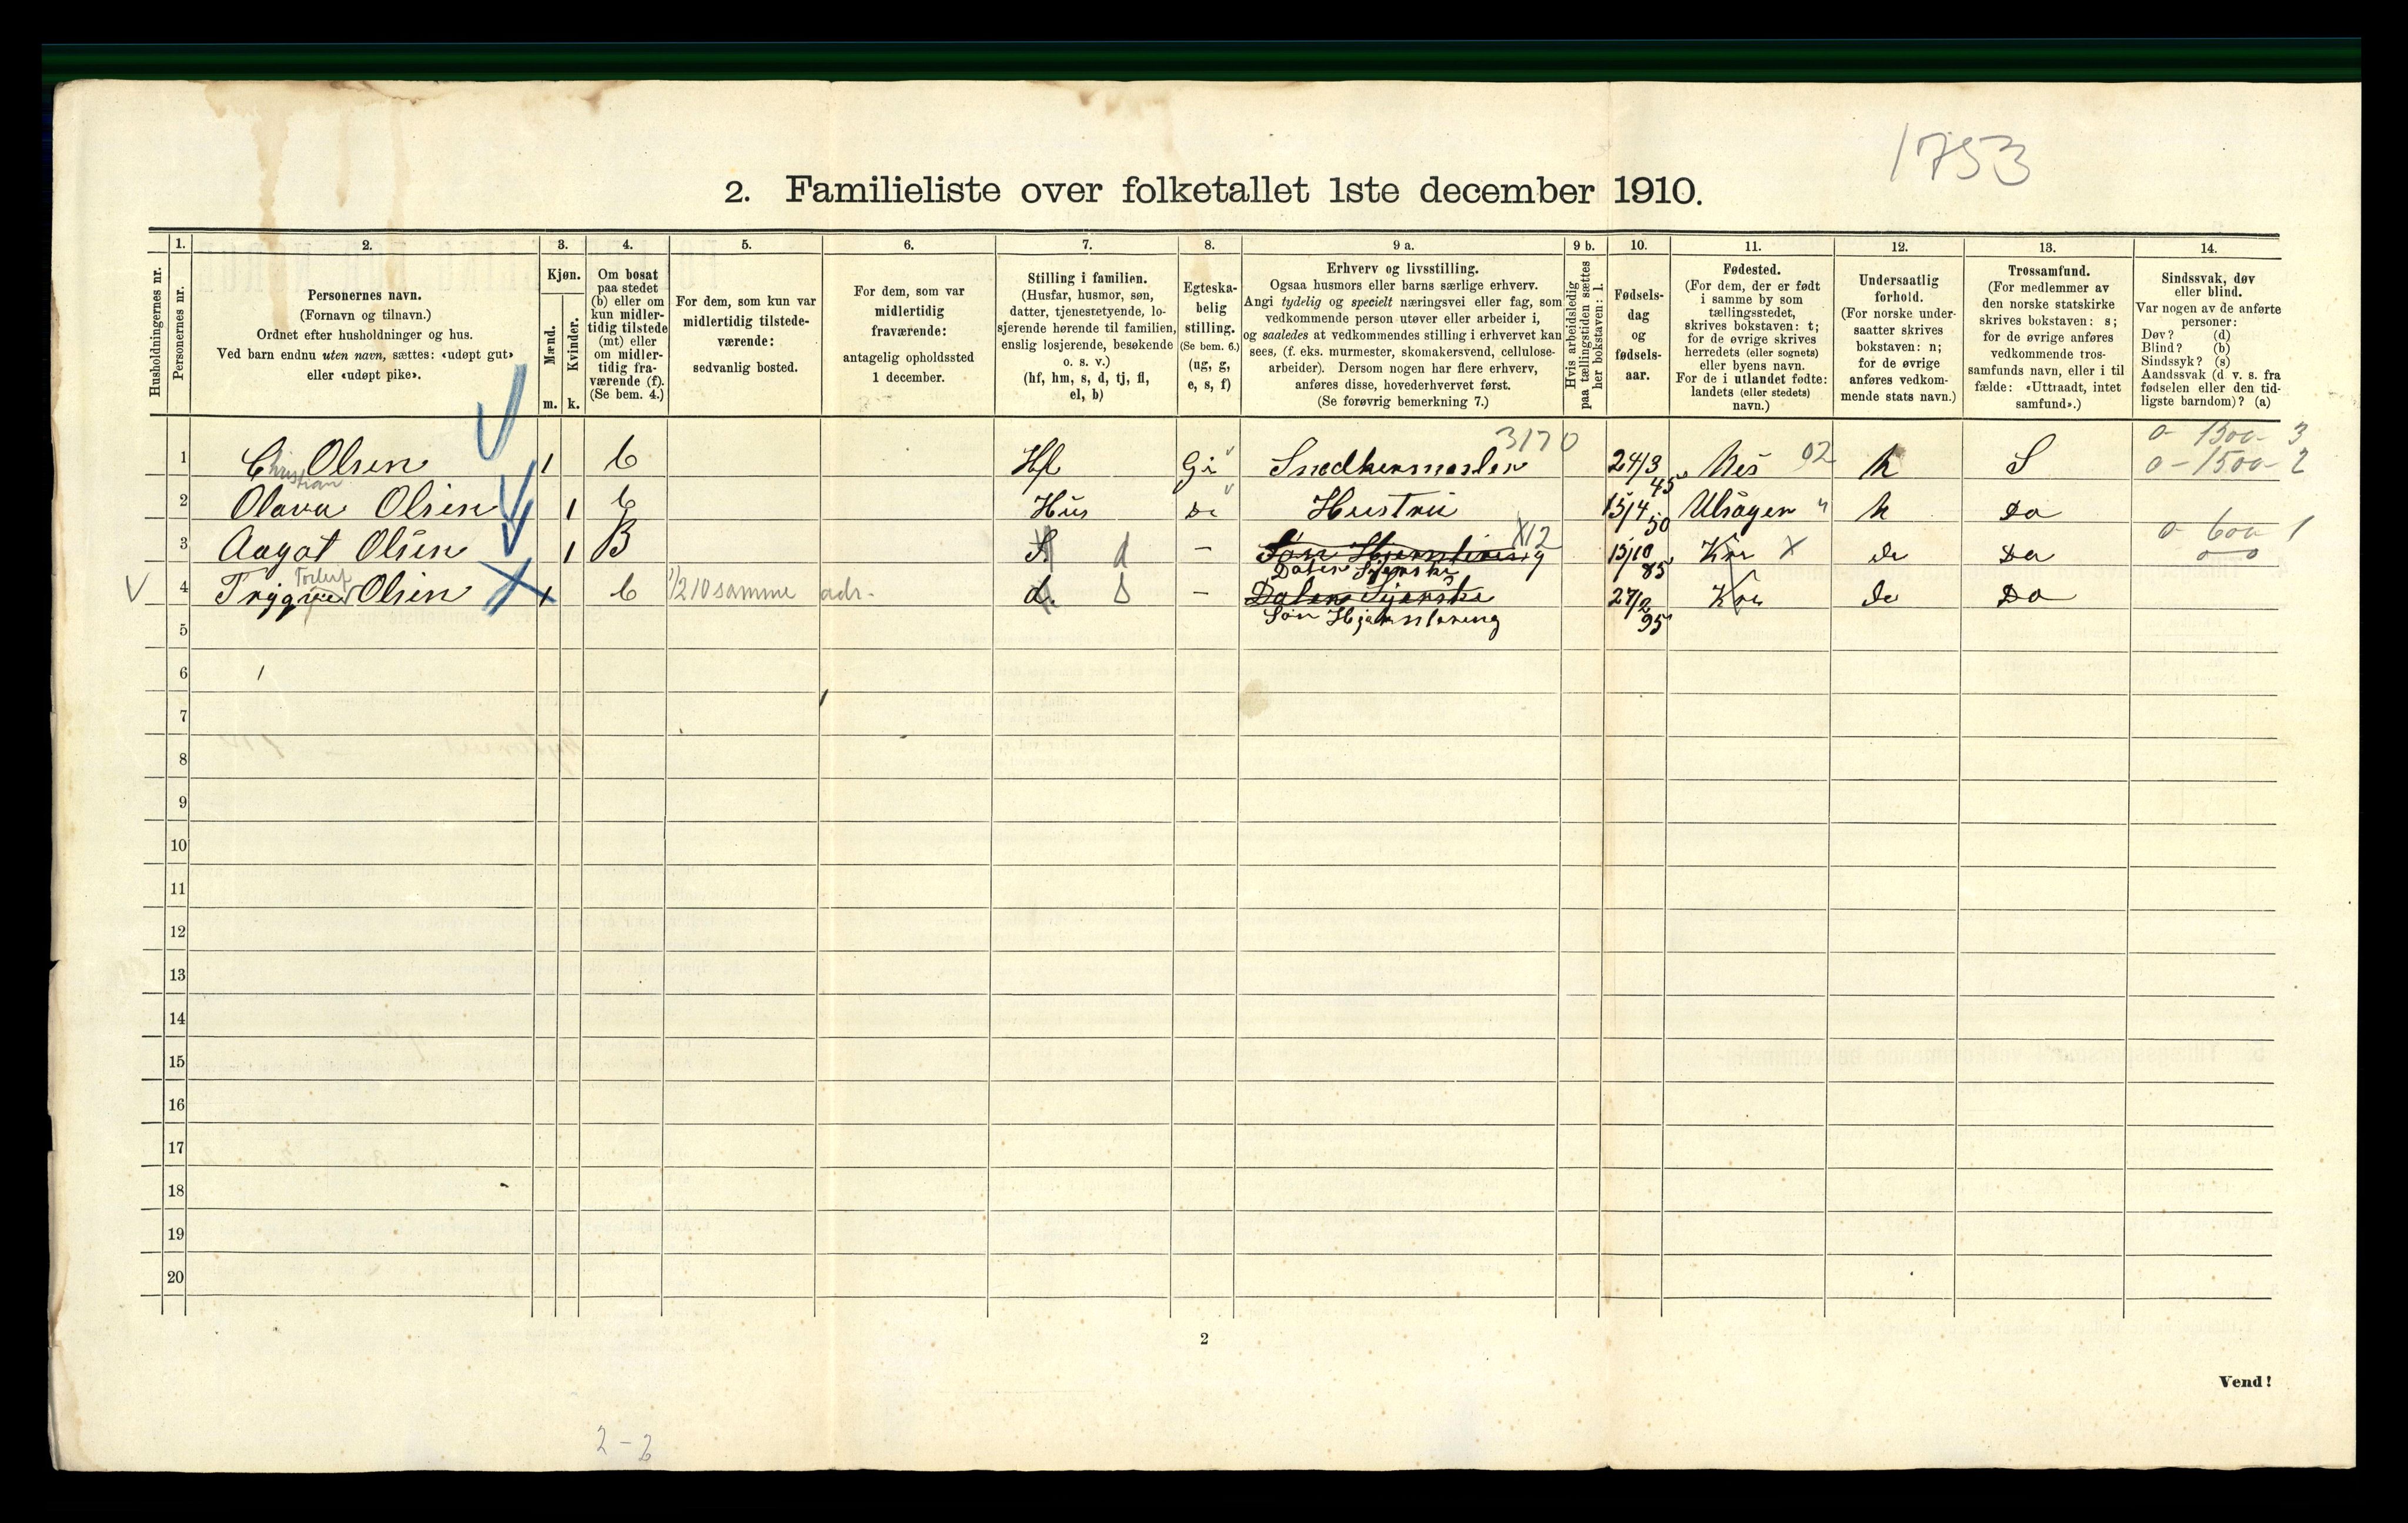 1753
2. Familieliste over folketallet 1ste december 1910.
1. 2. 3. 4. 5. 6. 7. 8. 9 a. 9 b. 10. 11. 12. 13. 14.
Husholdningernes nr.
Personernes nr.
Personernes navn.
(Fornavn og tilnavn.)
Ordnet efter husholdninger og hus.
Ved barn endnu uten navn, sættes: «udøpt gut»
eller «udøpt pike».
Kjøn.
Mænd.
Kvinder.
m. k.
Om bosat
paa stedet
(b) eller om
kun midler-
tidig tilstede
(mt) eller
om midler-
tidig fra-
værende (f).
(Se bem. 4.)
For dem, som kun var
midlertidig tilstede-
værende:
sedvanlig bosted.
For dem, som var
midlertidig
fraværende:
antagelig opholdssted
1 december.
Stilling i familien.
(Husfar, husmor, søn,
datter, tjenestetyende, lo-
sjerende hørende til familien,
enslig losjerende, besøkende
o. s. v.)
(hf, hm, s, d, tj, fl,
el, b)
Egteska-
belig
stilling.
(Se bem. 6.)
(ug, g,
e, s, f)
Erhverv og livsstilling.
Ogsaa husmors eller barns særlige erhverv.
Angi tydelig og specielt næringsvei eller fag, som
vedkommende person utøver eller arbeider i,
og saaledes at vedkommendes stilling i erhvervet kan
sees, (f. eks. murmester, skomakersvend, cellulose-
arbeider). Dersom nogen har flere erhverv,
anføres disse, hovederhvervet først.
(Se forøvrig bemerkning 7.)
Hvis arbeidsledig
paa tællingstiden sættes
her bokstaven: l.
Fødsels-
dag
og
fødsels-
aar.
Fødested.
(For dem, der er født
i samme by som
tællingsstedet,
skrives bokstaven: t;
for de øvrige skrives
herredets (eller sognets)
eller byens navn.
For de i utlandet fødte:
landets (eller stedets)
navn.)
Undersaatlig
forhold.
(For norske under-
saatter skrives
bokstaven: n;
for de øvrige
anføres vedkom-
mende stats navn.)
Trossamfund.
(For medlemmer av
den norske statskirke
skrives bokstaven: s;
for de øvrige anføres
vedkommende tros-
samfunds navn, eller i til
fælde: «Uttraadt, intet
samfund».)
Sindssvak, døv
eller blind.
Var nogen av de anførte
personer:
Døv? (d)
Blind? (b)
Sindssyk? (s)
Aandssvak (d v. s. fra
fødselen eller den tid-
ligste barndom)? (a)
3170 0-1500-3
1 Christian Olsen 1 b Hf Snedkermester 24/3 45 Nes 02 n S 0-1500-2
2 Olava Olsen 1 b Hus Do Hustru 15/4 50 n Do
X12 0 600 1
3 Aagot Olsen 1 B S d - Søn Hjemløring 15/10 85 Kra X Do Do 0 0
Dater Syerske
V 4 Trygve Olsen 1 b 1/2 10 samme adr. d. S - Dater Syerske 27/2 95 Kra Do Do
Søn Hjemløring
5
6
7
8
9
10
11
12
13
14
15
16
17
18
19
20
2
Vend!
2-2